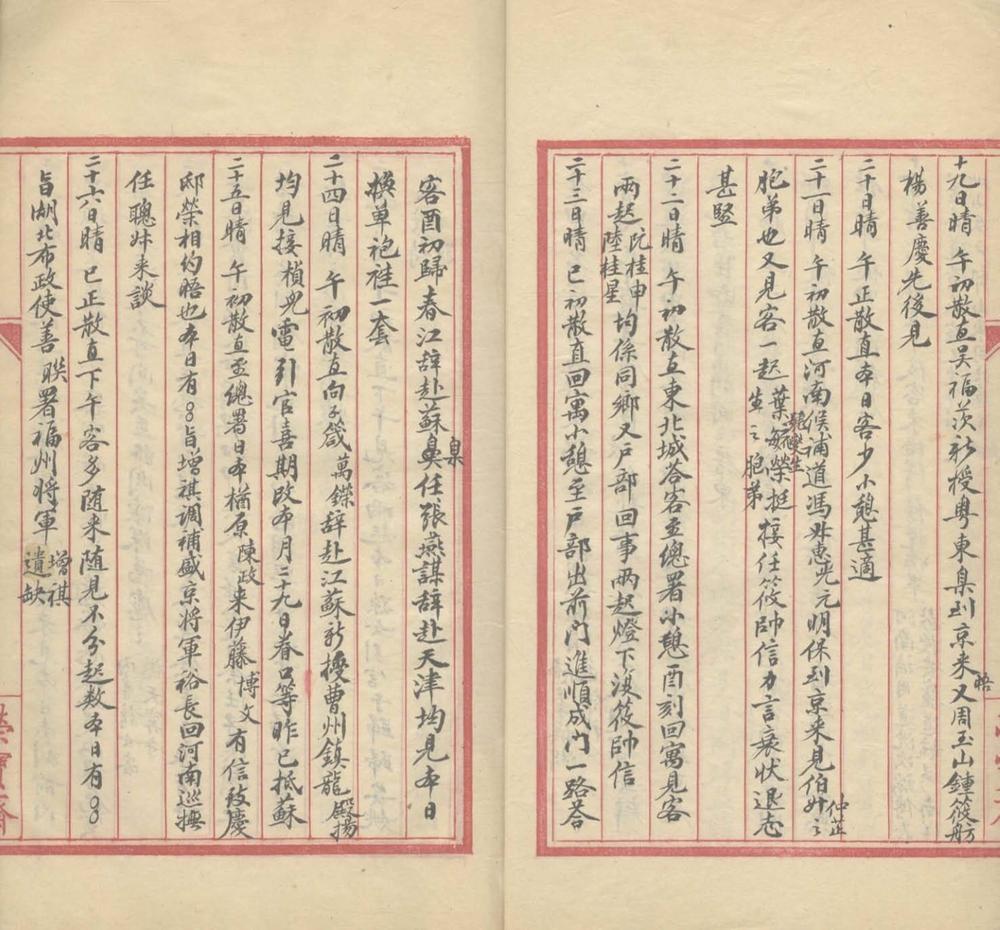 十九日晴 午初散直吴福茨新授粤東臬到京来晤又周玉山鍾筱舫
楊善慶先後見
二十日晴 午正散直本日客少小憩甚適
二十一日晴 午初散直河南候補道馮光元明保到京来見伯廾仲芷之
胞弟也又見客一起葉毓榮挺生之胞弟接任筱帥信力言衰状退志
甚堅
二十二日晴 午初散直東北城答客至總署小憩酉刻回寓見客
兩起阮桂申陸桂星均係同鄉又户部回事两起燈下復筱帥信
二十三日晴 巳初散直回寓小憩至户部出前門進順成門一路答
客酉初歸春江辞赴蘇臬任張燕謀辞赴天津均見本日
换單袍褂一套
二十四日晴 午初散直向子箴萬鑅辞赴江蘇新擢曹州鎮龍殿揚
均見接楨兒電引官喜期改本月二十九日眷口等昨已抵蘇
二十五日晴 午初散直至總署日本楢原陳政来伊藤博文有信致慶
邸榮相約晤也本日有旨增祺調補盛京將軍裕長回河南巡撫
任聰妹来談
二十六日晴 巳正散直下午客多随来随見不分起数本日有
旨湖北布政使善聯署福州將軍增祺遺缺
榮寶齋